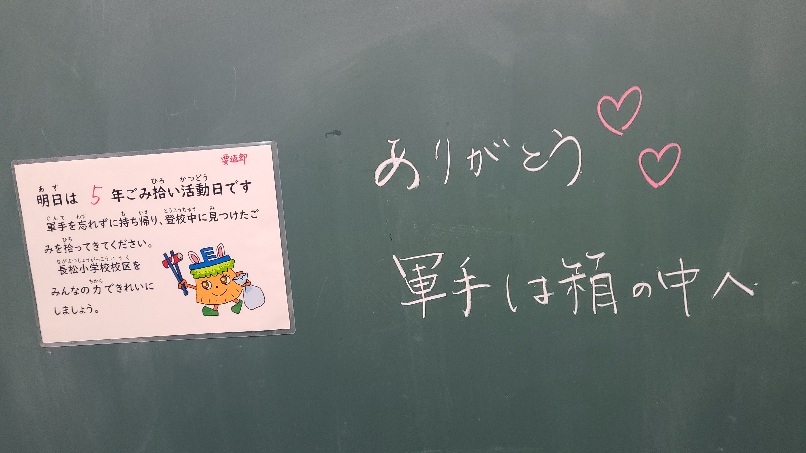 明日は 5 年ごみ拾い活動日です
軍手を忘れずに持ち帰り、登校中に見つけたご
みを拾ってきてください。
長松小学校校区を
みんなの力できれいに
しましょう。
ありがとう
軍手は箱の中へ